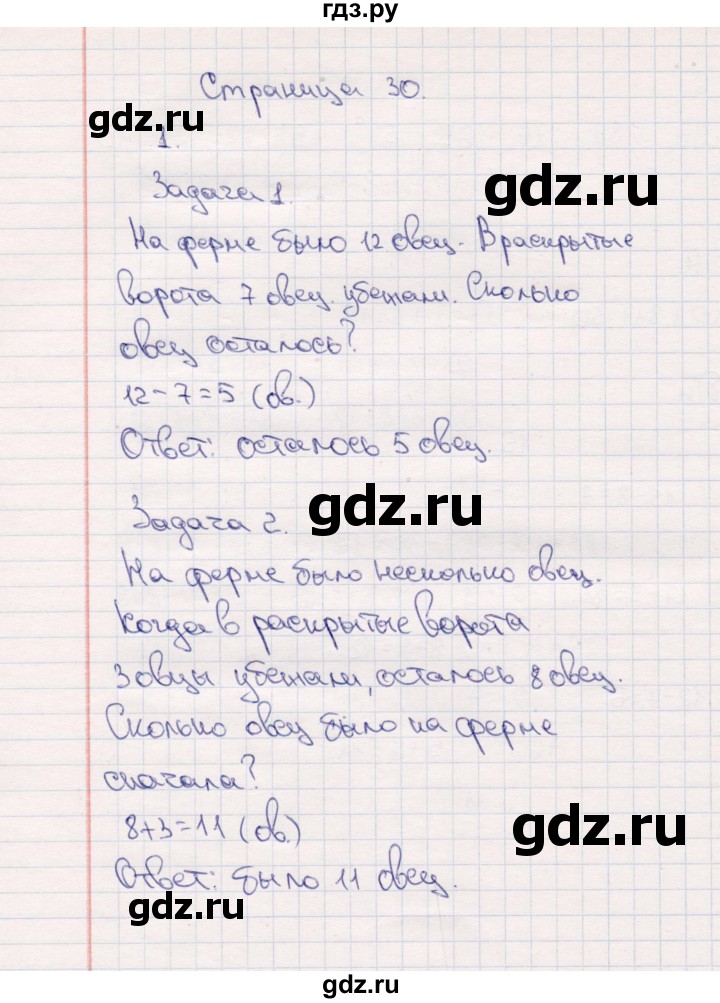 гдз.ру
Страница 30.
gdz.ru
1.
gdz.ru
Задача 1.
На ферме было 12 овец. В раскрытые
ворота 7 овец убежали. Сколько
овец осталось?
12-7=5 (ов.)
Ответ: осталось 5 овец.
gdz.ru
Задача 2.
На ферме было несколько овец.
Когда в раскрытые ворота
3 овцы убежали, осталось 8 овец.
Сколько овец было на ферме
сначала?
gdz.ru
8+3=11 (ов.)
Ответ: было 11 овец.
gdz.ru
gdz.ru